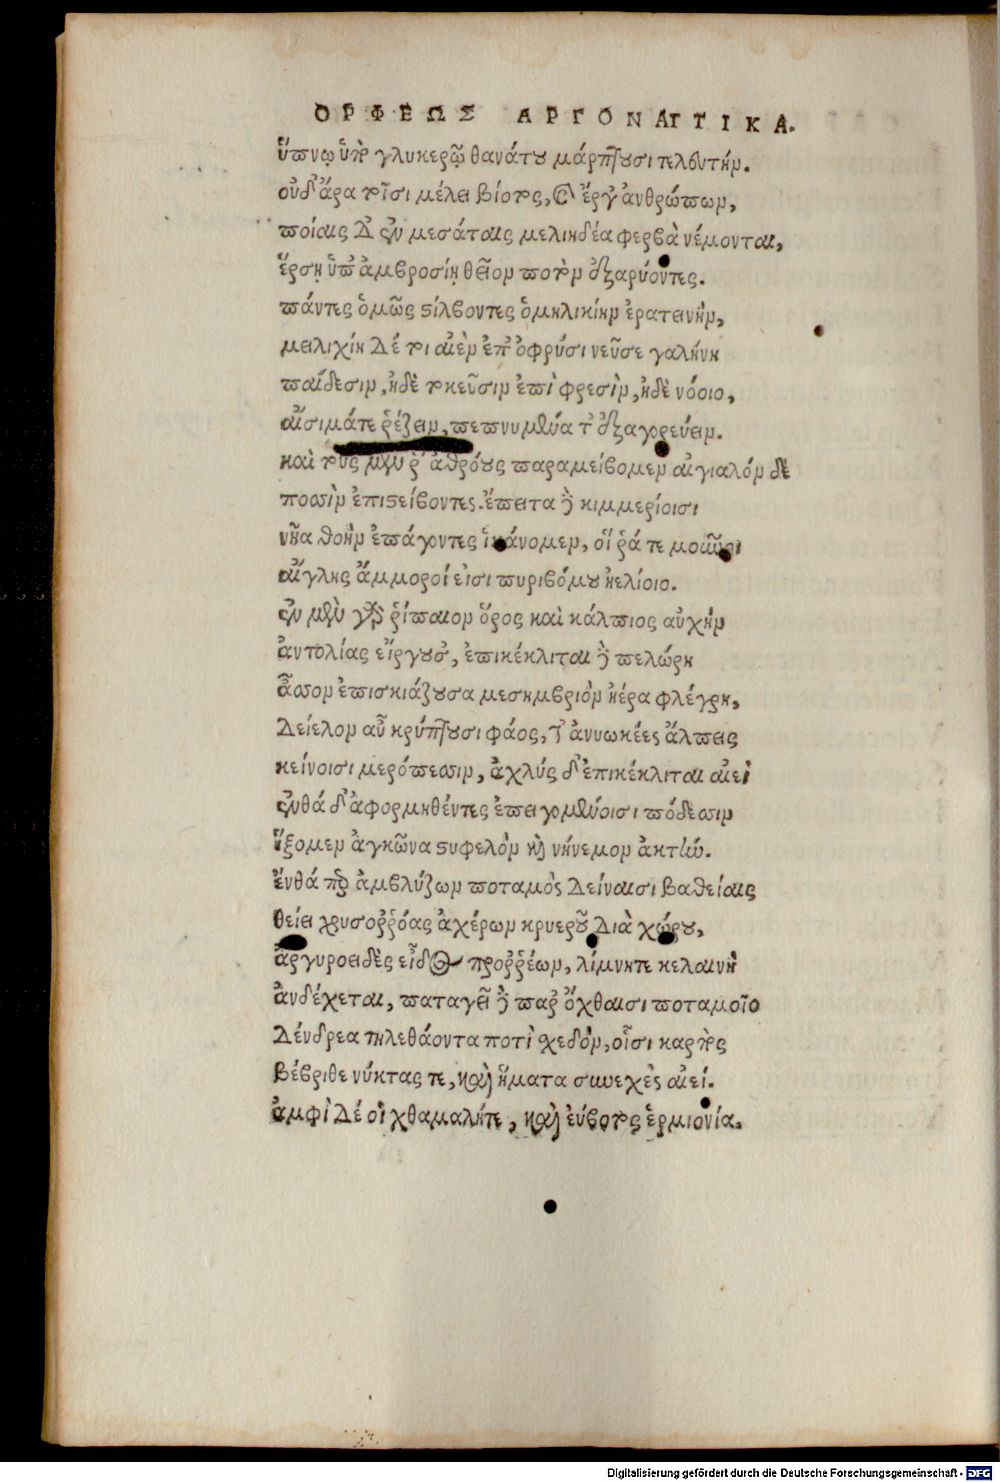 ΟΡΦΕΩΣ ΑΡΓΟΝΑΥΤΙΚΑ.
ὕπνῳ ὑπὸ γλυκερῷ θανάτου μάρπτουσι τελευτήν.
οὐδ' ἄρα τοῖσι μέλει βίοτος, καὶ ἔργ' ἀνθρώπων,
ποίαις δ' ἐν μεσάταις μελιηδέα φερβὰ νέμονται,
ἕρσῃ ὑπ' ἀμβροσίῃ θεῖον ποτὸν ἐξαρύοντες.
πάντες ὁμῶς στίλβοντες ὁμηλικίην ἐρατεινὴν,
μειλιχίη δέ τοι αἰὲν ἐπ' ὀφρύσι νεῦσε γαλήνη
παίδεσιν, ἠδὲ τοκεῦσιν ἐπὶ φρεσὶν, ἠδὲ νόοιο,
αἴσιμά τε ῥέζειν, πεπνυμένα τ' ἐξαγορεύειν.
καὶ τοὺς μὲν ῥ' ἀθρόους παραμείβομεν αἰγιαλόν δὲ
ποσσὶν ἐπιστείβοντες. ἔπειτα δὲ κιμμερίοισι
νῆα θοὴν ἐπάγοντες ἱκάνομεν, οἵ ῥά τε μοῦνοι
αἴγλης ἄμμοροί εἰσι πυριβόμου ἠελίοιο.
ἐν μὲν γὰρ ῥίπαιον ὄρος καὶ κάλπιος αὐχὴν
ἀντολίας εἴργουσ', ἐπικέκλιται δὲ πελώρη
ἆσσον ἐπισκιάζουσα μεσημβριὸν ἠέρα φλέγρη,
δείελον αὖ κρύπτουσι φάος, τανυωκέες ἄλπεις
κείνοισι μερόπεσσιν, ἀχλύς δ' ἐπικέκλιται αἰεὶ
ἔνθά δ' ἀφορμηθέντες ἐπειγομένοισι πόδεσσιν
ἵξομεν ἀγκῶνα στυφελὸν καὶ νήνεμον ἀκτήν.
ἔνθά περ ἀμβλύζων ποταμὸς δείναισι βαθείαις
θείει χρυσορρόας ἀχέρων κρυεροῦ διὰ χώρου,
ἀργυροειδὲς εἶδος προρρέων, λίμνητε κελαινὴ
ἀνδέχεται, παταγεῖ δὲ παρ' ὄχθαισι ποταμοῖο
δένδρεα τηλεθάοντα ποτὶ σχεδὸν, οἷσι καρπὸς
βέβριθε νύκτας τε, καὶ ἤματα συνεχὲς αἰεί.
ἀμφὶ δέ οἱ χθαμαλήτε, καὶ εὔβοτος ἑρμιονία.
Digitalisierung gefördert durch die Deutsche Forschungsgemeinschaft - DFG